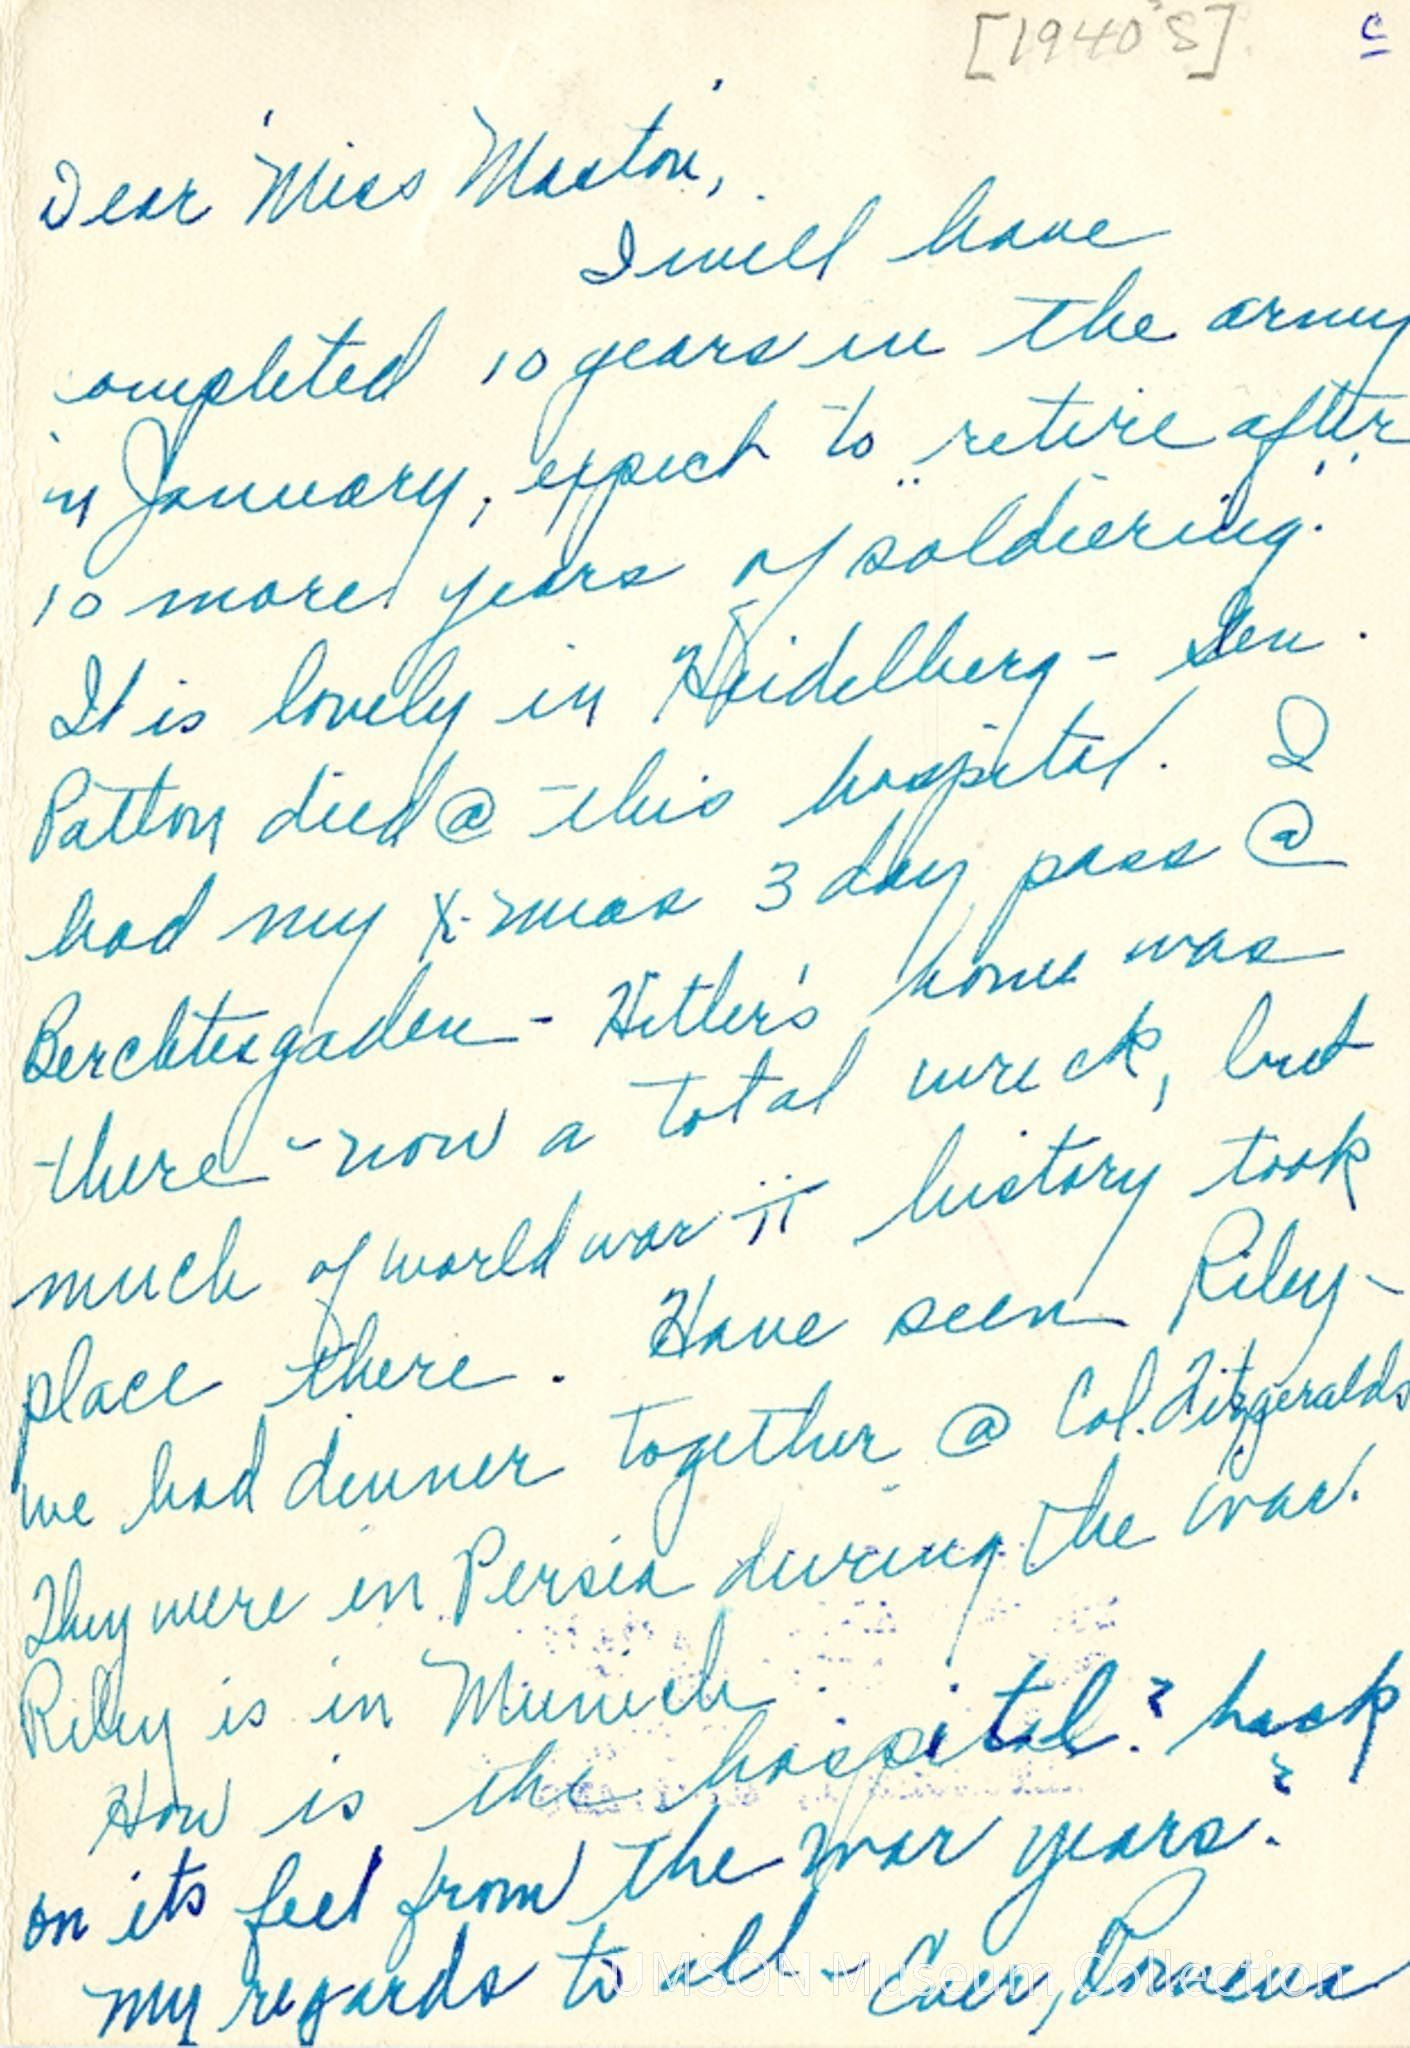 [1940's] c
Dear Miss Maxton,
I will have
completed 10 years in the army
in January, expect to "retire after
10 more years of soldiering."
It is lovely in Heidelberg - Gen.
Patton died @ this hospital. I
had my X-mas 3 day pass @
Berchtesgaden - Hitler's home was
there - now a total wreck, but
much of world war II history took
place there. Have seen Riley -
we had dinner together @ Col. Fitzgeralds
They were in Persia during the war.
Riley is in Munich.
How is the hospital? back
on its feet from the war years?
My regards to all - Ever,
UMSON Museum Collection